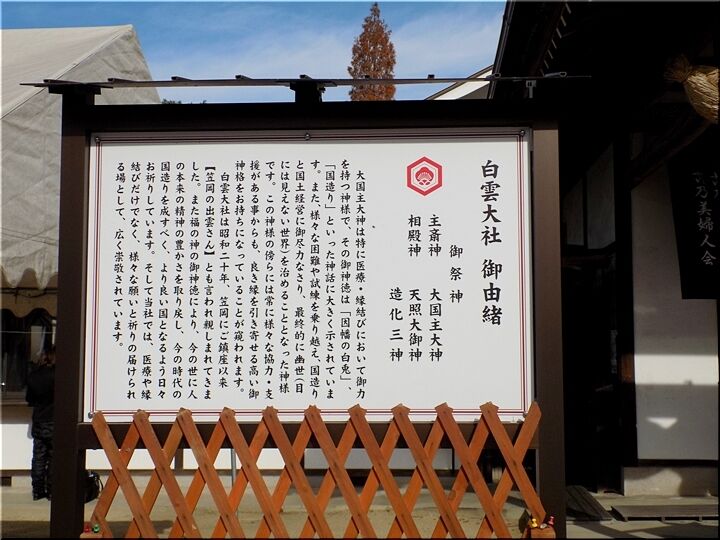 白雲大社 御由緒
御祭神
主斎神 大国主大神
相殿神 天照大御神
造化三神
大国主大神は特に医療・縁結びにおいて御力
を持つ神様で、その御神徳は「因幡の白兎」、
「国造り」といった神話に大きく示されていま
す。また、様々な困難や試練を乗り越え、国造り
と国土経営に御尽力なさり、最終的に幽世(目
には見えない世界)を治めることとなった神様
です。この神様の傍らには常に様々な協力・支
援がある事からも、良き縁を引き寄せる高い御
神格をお持ちになっていることが窺われます。
白雲大社は昭和二十年、笠岡にご鎮座以来
【笠岡の出雲さん】とも言われ親しまれてきま
した。また福の神の御神徳により、今の世に人
の本来の精神の豊かさを取り戻し、今の時代の
国造りを成すべく、より良い国となるよう日々
お祈りしています。そして当社では、医療や縁
結びだけでなく、様々な願いと祈りの届けられ
る場として、広く崇敬されています。
乃美婦人会